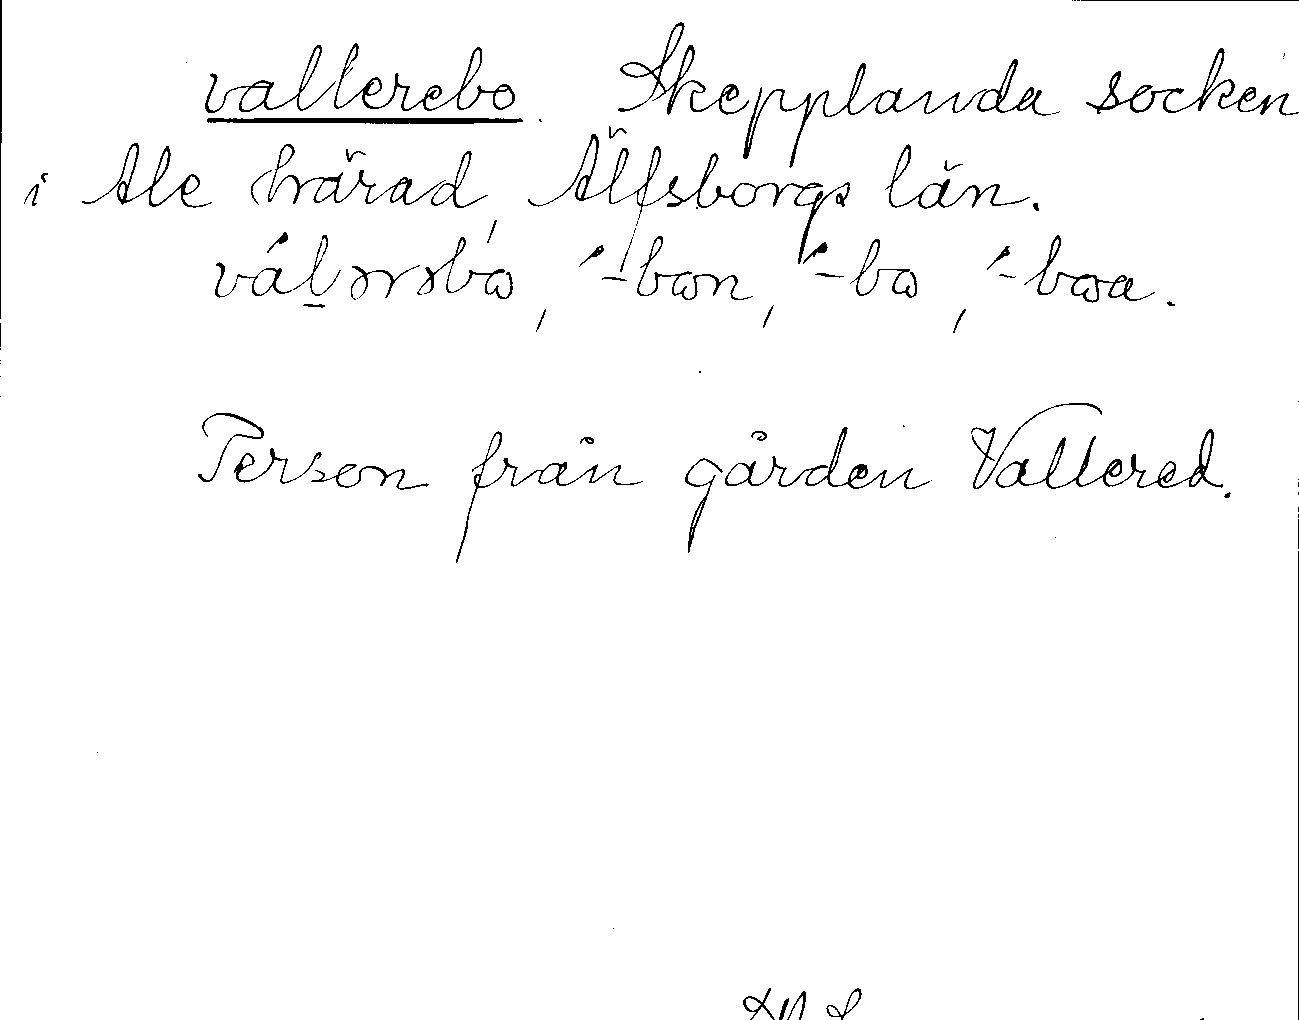 vallerebo Skepplanda socken
i Ale härad, Älfsborgs län.
-bon, -bo, -boa.
Person från gården Vallered.